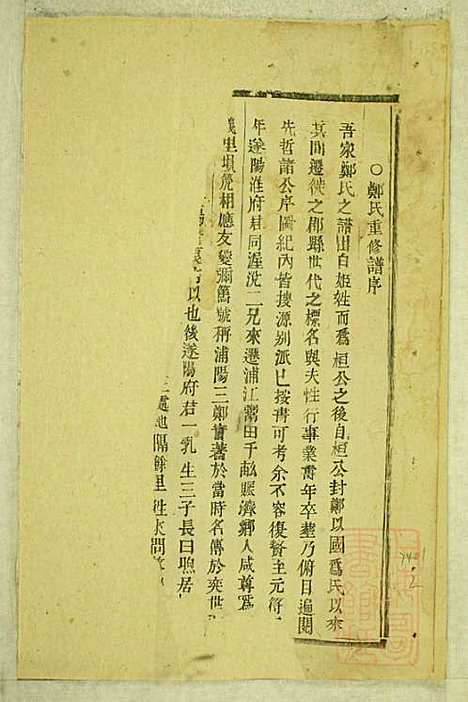 ○鄭氏重修譜序
吾家鄭氏之譜出自姬姓而爲桓公之後自桓公封鄭以國爲氏以來
其間遷徙之郡縣世代之標名與夫性行事業壽年卒塟乃俯目遍閱
先哲諸公序圖紀內皆搜源别派已按靑可考余不容復贅主元符
年遂陽淮府君同渥況二兄來遷浦江鬻田千畝賑濟鄉人咸尊爲
義里塤箎相應友愛彌篤號稱浦陽三鄭實著於當時名傳於奕世
以也後遂陽府君一乳生三子長曰聰居
處地隔餘里 往來問
7401
2